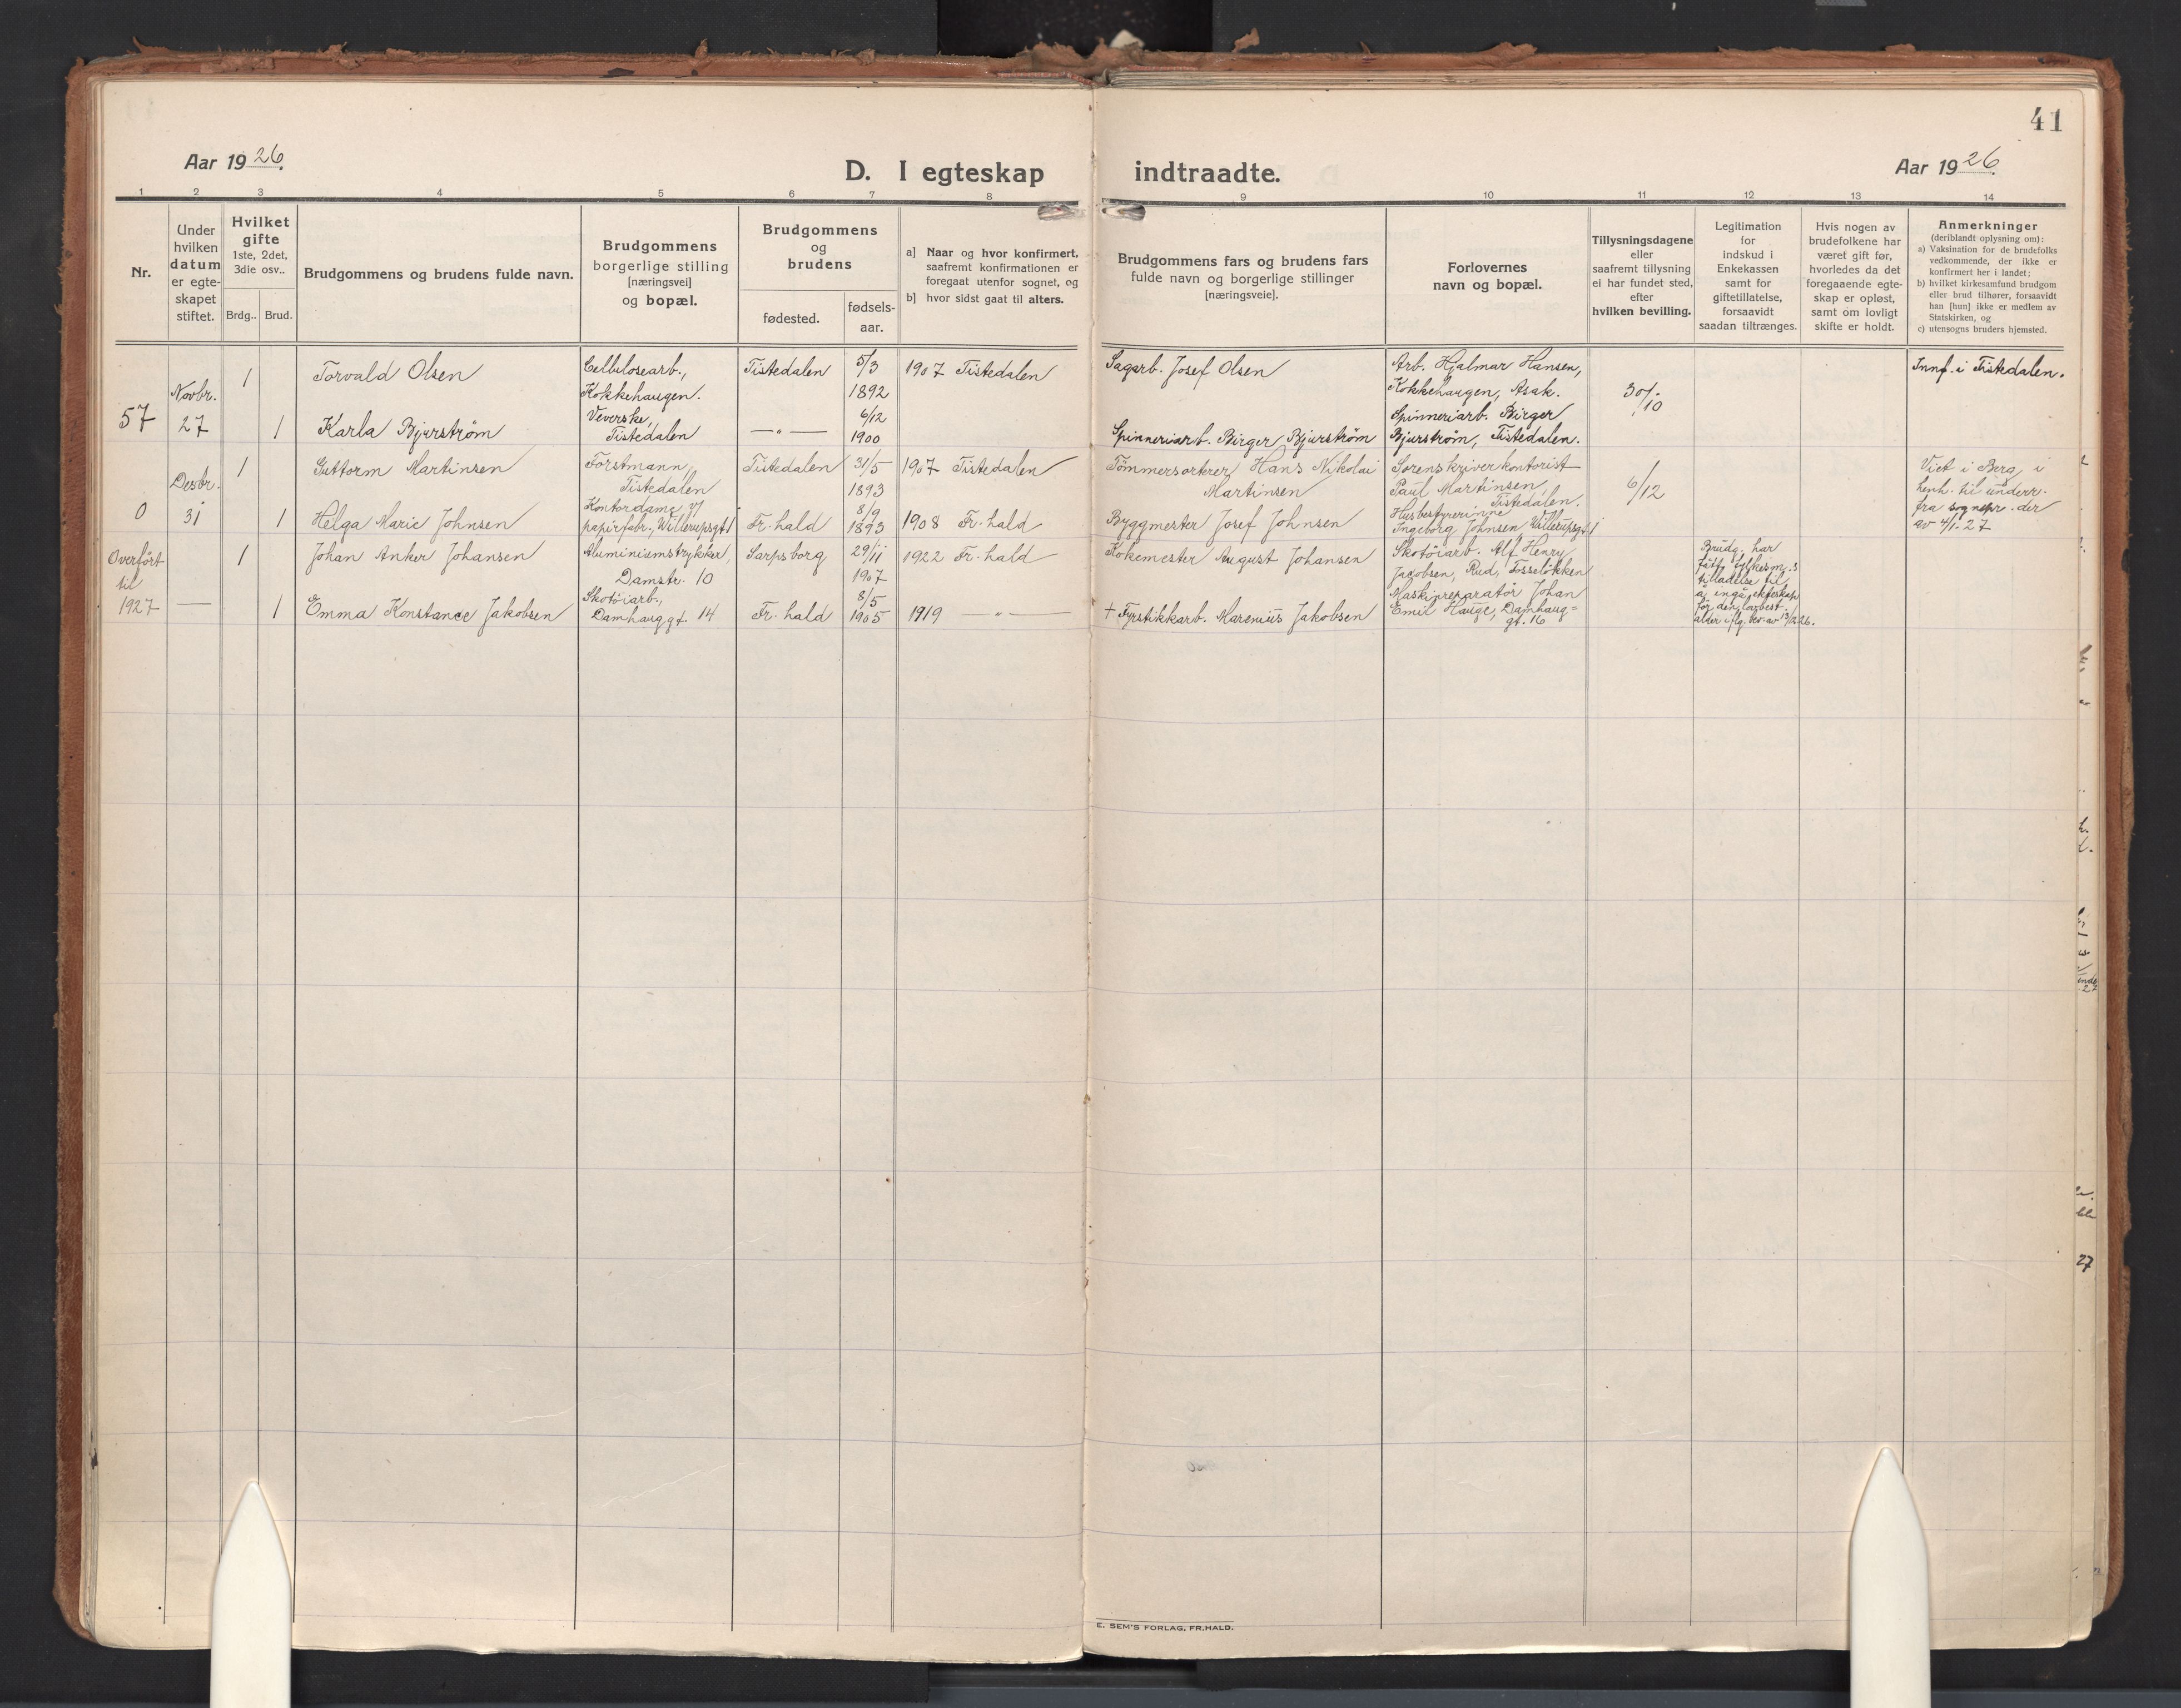 41
Aar 1926.
D. I egteskap indtraadte.
Aar 1926.
1 2 3 4 5 6 7 8 9 10 11 12 13 14
Nr.
Under
hvilken
datum
er egte-
skapet
stiftet.
Hvilket
gifte
1ste, 2det,
3die osv..
Brdg.. Brud.
Brudgommens og brudens fulde navn.
Brudgommens
borgerlige stilling
[næringsvei]
og bopæl.
Brudgommens
og
brudens
fødested.
fødsels-
aar.
a] Naar og hvor konfirmert,
saafremt konfirmationen er
foregaat utenfor sognet, og
b] hvor sidst gaat til alters.
Brudgommens fars og brudens fars
fulde navn og borgerlige stillinger
[næringsveie].
Forlovernes
navn og bopæl.
Tillysningsdagene
eller
saafremt tillysning
ei har fundet sted,
efter
hvilken bevilling.
Legitimation
for
indskud i
Enkekassen
samt for
giftetillatelse,
forsaavidt
saadan tiltrænges.
Hvis nogen av
brudefolkene har
været gift før,
hvorledes da det
foregaaende egte-
skap er opløst,
samt om lovligt
skifte er holdt.
Anmerkninger
(deriblandt oplysning om):
a) Vaksination for de brudefolks
vedkommende, der ikke er
konfirmert her i landet;
b) hvilket kirkesamfund brudgom
eller brud tilhører, forsaavidt
han [hun] ikke er medlem av
Statskirken, og
c) utensogns bruders hjemsted.
57
Novbr.
27
1
Torvald Olsen
Cellulosearb.,
Kokkehaugen.
Tistedalen
5/3
1892
1907 Tistedalen
Sagarb. Josef Olsen
Arb. Hjalmar Hansen,
Kokkehaugen, Asak.
30/10
Innf. i Tistedalen.
1
Karla Bjurstrøm
Veverske,
Tistedalen
— " —
6/12
1900
Spinneriarb. Birger Bjurstrøm
Spinneriarb. Birger
Bjurstrøm, Tistedalen.
0
Desbr.
31
1
Guttorm Martinsen
Forstmann,
Tistedalen
Tistedalen
31/5
1893
1907 Tistedalen
Tømmersorterer Hans Nikolai
Martinsen
Sorenskriverkontorist
Paul Martinsen,
Tistedalen.
6/12
Viet i Berg i
henh. til underr.
fra sognepr. der
av 4/1-27
1
Helga Marie Johnsen
Kontordame v/
papirfabr., Willerupsgt 1
Fr.hald
8/9
1893
1908 Fr.hald
Byggmester Josef Johnsen
Husbestyrerinne
Ingeborg Johnsen Willerupsgt 1
Overført
til
1927
—
1
Johan Anker Johansen
Aluminiumstrykker,
Damstr. 10
Sarpsborg
29/11
1907
1922 Fr.hald
Kokemester August Johansen
Skotøiarb. Alf Henry
Jacobsen, Rud, Fosseløkken
Brudg. har
fått fylkesm.s
tilladelse til
å inngå ekteskap
før den lovbest.
alder iflg. bev. av 13/12 26.
1
Emma Konstance Jakobsen
Skotøiarb.,
Damhauggt. 14
Fr.hald
8/5
1905
1919 — " —
+ Fyrstikkarb. Marenius Jakobsen
Maskinreparatør Johan
Emil Hauge, Damhaug=
gt. 16
27
E. SEM'S FORLAG, FR.HALD.